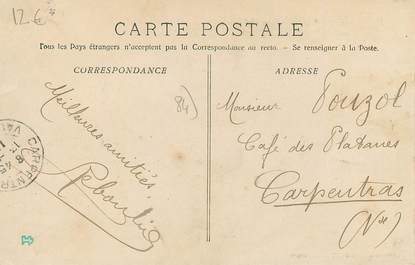 12 €
CARTE POSTALE
Tous les Pays étrangers n'acceptent pas la Correspondance au recto. — Se renseigner à la Poste.
CORRESPONDANCE
ADRESSE
84)
Meilleures amitiés
Reboulin
Monsieur Pouzol
Café des Platanes
Carpentras
(Vse)
CARPENTRAS